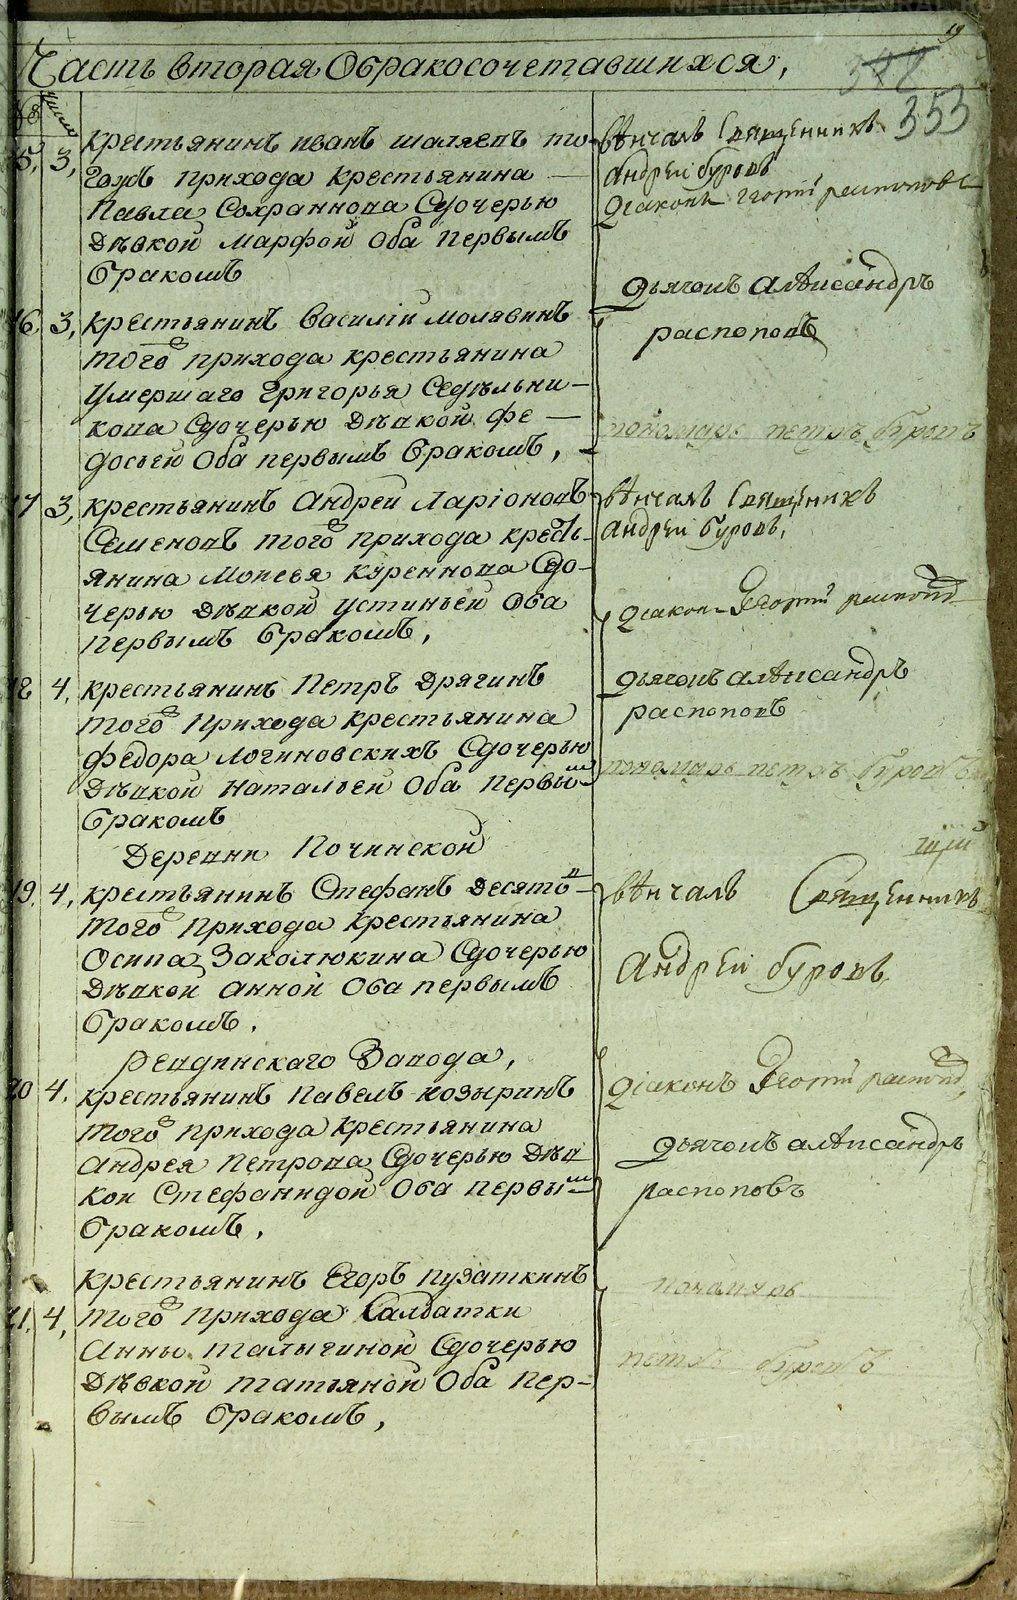 19
Часть вторая Обракосочетавшихся,
353
число
15, 3, крестьянинъ иванъ шаляевъ то-
гожъ прихода крестьянина
Павла Сохраннова Сдочерью
Дѣвкой марфой Оба первымъ
бракомъ
вѣнчалъ Священникъ
Андрей буровъ
Діаконъ георгій распоповъ
дьячокъ алеѯандръ
распоповъ
16, 3, крестьянинъ василій молявинъ
того прихода крестьянина
умершаго григорья Седѣльни-
кова Сдочерью Дѣвкой фе-
досьей Оба первымъ бракомъ,
пономарь петръ буровъ
17 3, крестьянинъ андрей Ларіоновъ
Семеновъ того прихода кресть-
янина моисея куреннова Сдо-
черью Дѣвкой устиньей Оба
первымъ бракомъ,
вѣнчалъ Священникъ
андрей буровъ,
діаконъ Георгій распопов
18 4, крестьянинъ Петръ Дрягинъ
того прихода крестьянина
федора логиновскихъ Сдочерью
Дѣвкой натальей Оба первым
бракомъ
дьячокъ алеѯандръ
распоповъ
пономарь петръ буровъ
Деревни Починской
19, 4, крестьянинъ Стефанъ Десятов
того прихода крестьянина
Осипа Заколюкина Сдочерью
Дѣвкой анной Оба первымъ
бракомъ,
вѣнчалъ Священникъ
Андрей буровъ
Ревдинскаго Завода,
20 4, крестьянинъ павелъ козыринъ
того прихода крестьянина
андрея петрова Сдочерью Дѣв
кой Стефанидой Оба первым
бракомъ,
діаконъ Георгій распопов
дьячокъ алеѯандръ
распоповъ
21, 4, крестьянинъ Егоръ пузаткинъ
того прихода Салдатки
анны талыгиной Сдочерью
Дѣвкой татьяной Оба пер-
вымъ бракомъ,
пономарь
петръ буровъ
METRIKI.GASO-URAL.RU